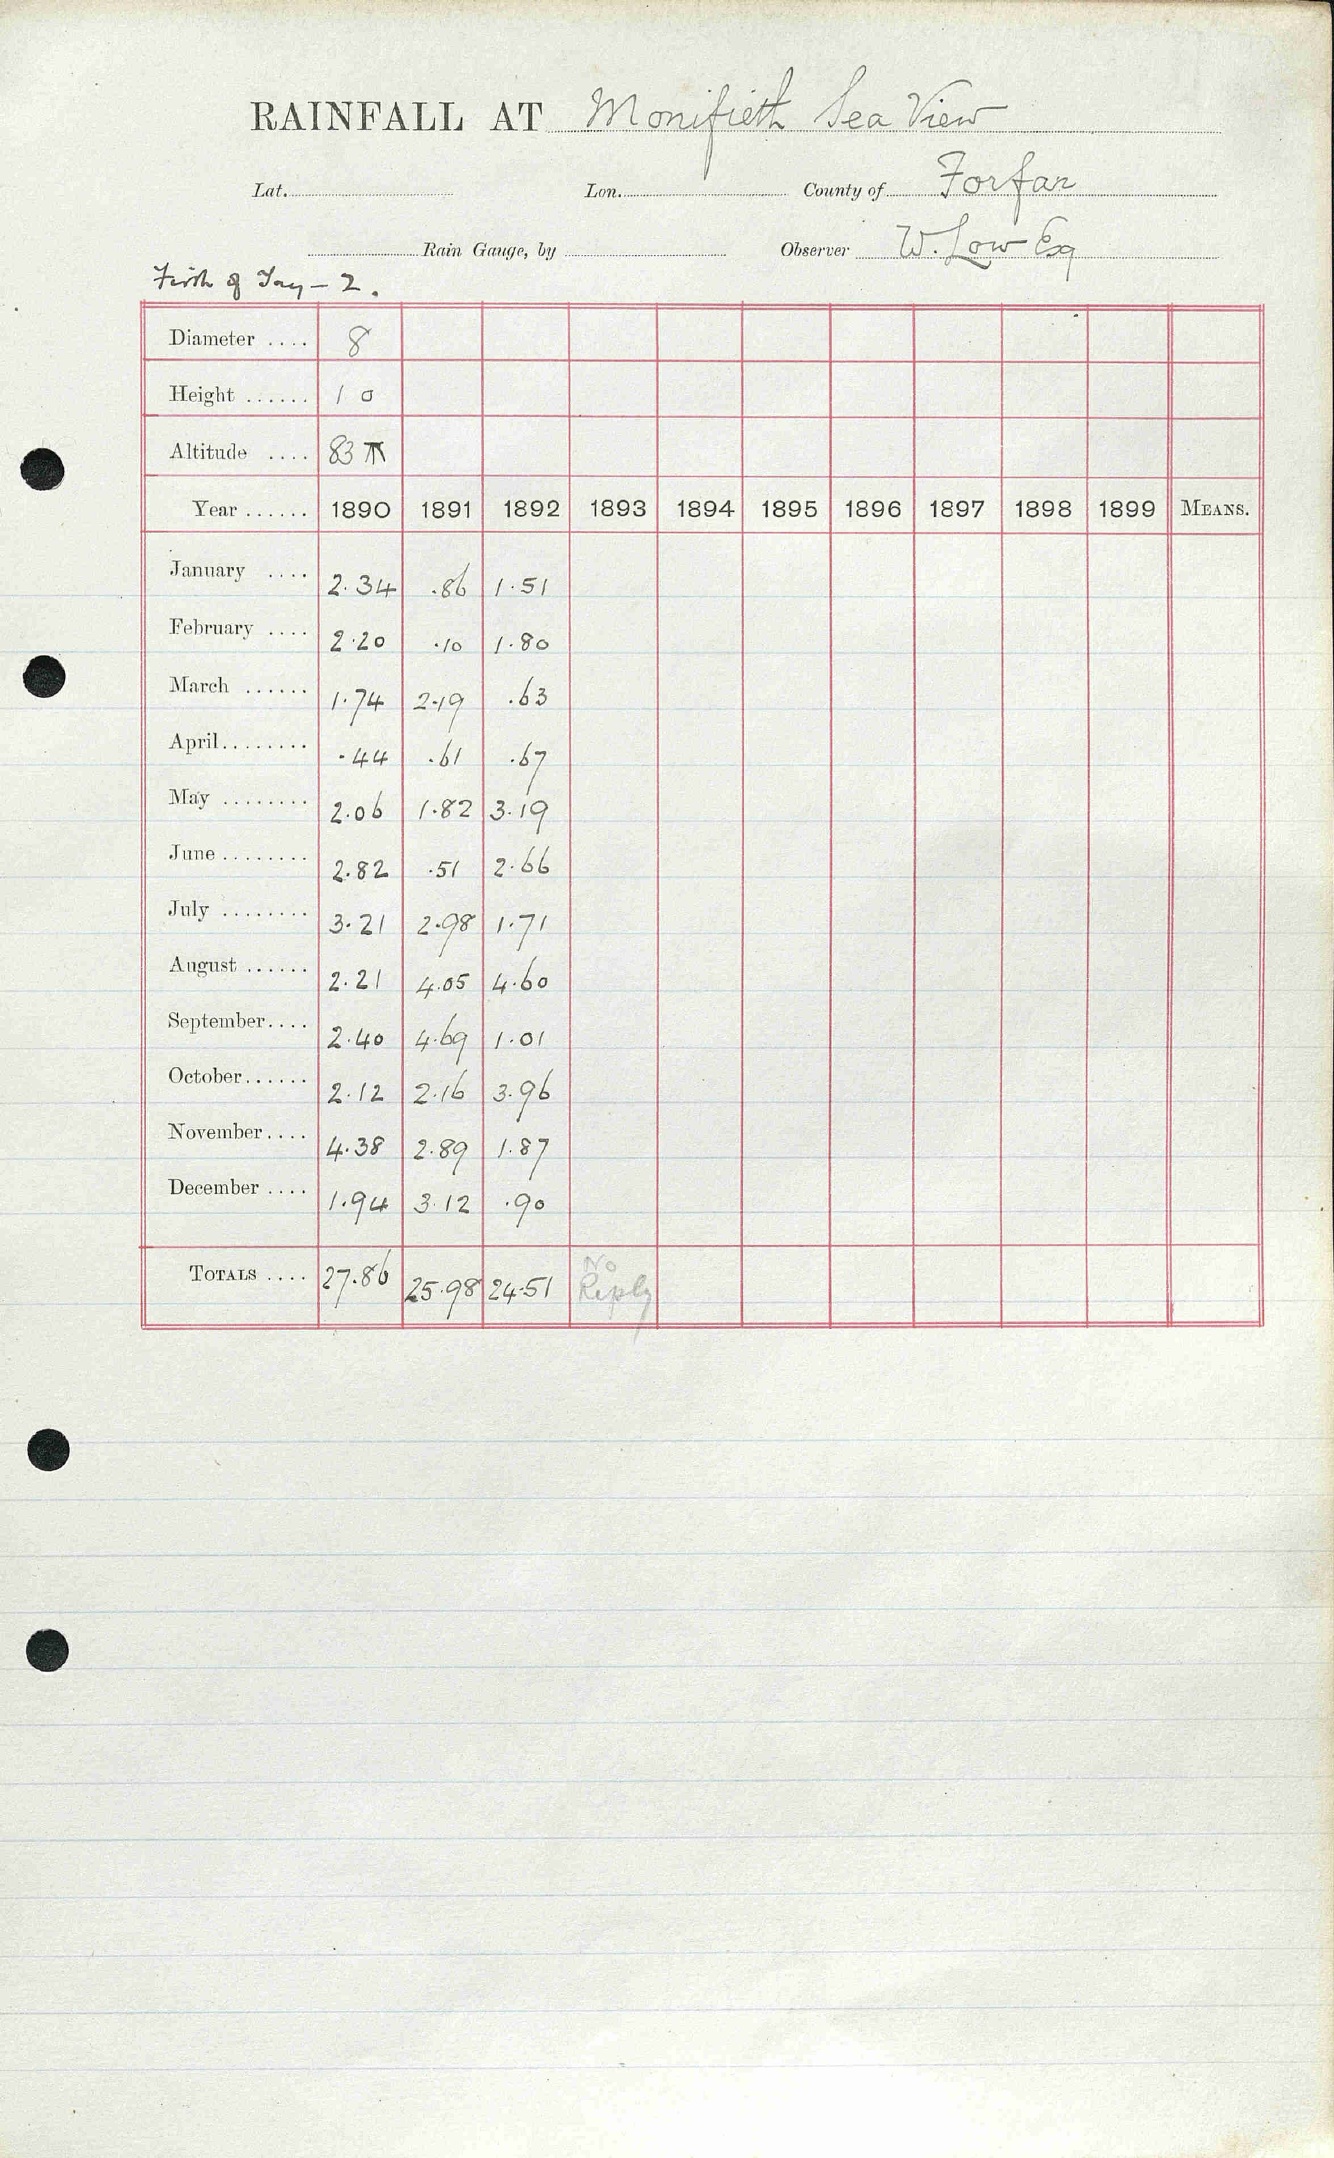 RAINFALL AT Monifieth Sea View
Lat. Lon. County of Forfar
Rain Gauge, by Observer W. Low Esq
Firth of Tay – 2.
Diameter .... 8
Height ...... 1 0
Altitude .... 83
Year ...... 1890 1891 1892 1893 1894 1895 1896 1897 1898 1899 MEANS.
January .... 2.34 .86 1.51
February .... 2.20 .10 1.80
March ...... 1.74 2.19 .63
April........ .44 .61 .67
May ........ 2.06 1.82 3.19
June ........ 2.82 .51 2.66
July ........ 3.21 2.98 1.71
August ...... 2.21 4.05 4.60
September.... 2.40 4.69 1.01
October...... 2.12 2.16 3.96
November.... 4.38 2.89 1.87
December .... 1.94 3.12 .90
TOTALS .... 27.86 25.98 24.51 No Reply